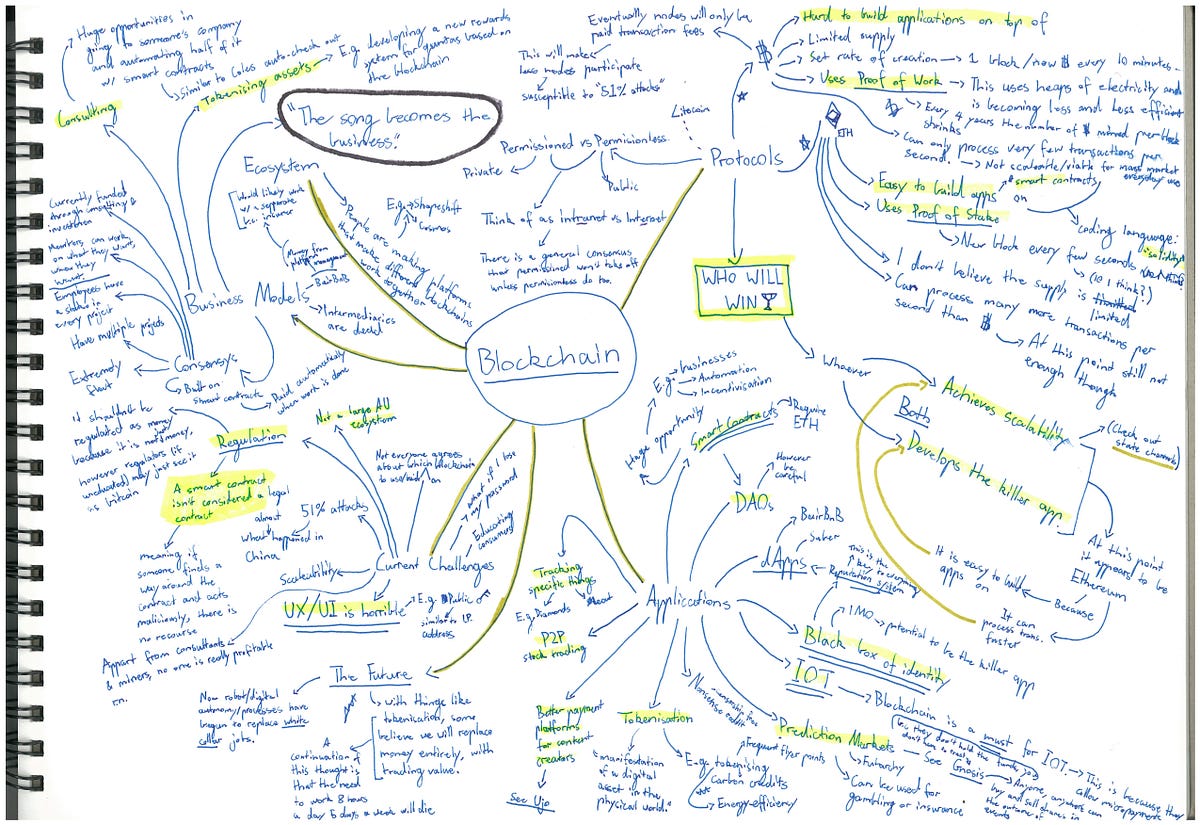 Blockchain
Huge opportunities in
going to someone's company
and automating half of it
w/ smart contracts
Similar to Coles auto-check out
Consulting
Tokenising assets
E.g. developing a new rewards
system for quantas based on
the blockchain
"The song becomes the
business."
Ecosystem
Would likely work
w/ a separate
insurer
People are making platforms
that make different blockchains
work together
E.g. Shapeshift
Cosmos
Business Models
Money from
BairBnB
Intermediaries
are dead
Currently funded
through consulting &
investment
Members can work
on what they want,
when they
want.
Employees have
a stake in
every project
Have multiple projects
Extremely
flat
Consensys
Built on
smart contracts
Paid automatically
when work is done
Protocols
Litecoin
Permissioned vs Permisionless
Private
Public
Think of as intranet vs Internet
There is a general consensus
that permissioned won't take off
unless permissionless do too.
Eventually nodes will only be
paid transaction fees
This will make
less nodes participate
susceptible to "51% attacks"
Hard to build applications on top of
Limited supply
Set rate of creation → 1 block/new $ every 10 minutes
Uses Proof of Work → This uses heaps of electricity and
is becoming less and less efficient
Every 4 years the number of $ mined per block
shrinks
Can only process very few transactions per
second. → Not scaleable/viable for mass market
everyday use
ETH
Easy to build apps on
smart contracts
coding language:
solidity
Uses Proof of Stake
New block every few seconds
(10 I think?)
I don't believe the supply is
limited
Can process many more transactions per
second than $
At this point still not
enough though
WHO WILL
WIN
Whoever
Achieves scalability
Both
Develops the killer app
(Check out
state channels)
At this point
it appears to be
Ethereum
Because
It is easy to build
apps on
It can
process trans.
faster
Applications
Smart Contracts
Require
ETH
Huge opportunity
E.g. businesses
Automation
Incentivisation
DAOs
However
be
careful
dApps
BairBnB
Suber
This is the
key to everything
Reputation system
Black box of identity
IMO → potential to be the killer app
IOT → Blockchain is a must for IOT. → This is because they
allow micropayments
Prediction Markets
See Gnosis → Anyone, anywhere can
buy and sell shares in
the outcome of
events
Futarchy
Can be used for
gambling or insurance
Tokenisation
"manifestation
of a digital
asset in the
physical world."
E.g. tokenising
Frequent flyer points
Carbon credits
Energy-efficiency
Better payment
platforms
for content
creators
See Ujo
P2P
stock trading
Tracking
specific things
E.g. Diamonds
Meat
Current Challenges
What if I lose
my password
Educating
consumers
Not everyone agrees
about which blockchain
to use/build on
Not a large AU
ecosystem
Regulation
It shouldn't be
regulated as money
because it is not just money,
however regulators (if
uneducated) may just see it
as bitcoin
A smart contract
isn't considered a legal
contract
meaning if
someone finds a
way around the
contract and acts
maliciously, there is
no recourse
51% attacks
almost
What happened in
China
Scaleability
UX/UI is horrible
E.g. Public
similar to I.P.
address
Appart from consultants
& miners, no one is really profitable
rn.
The Future
Now robot/digital
autonomy/processes have
begun to replace white
collar jobs.
with things like
tokenisation, some
believe we will replace
money entirely, with
trading value.
A
continuation of
this thought is
that the need
to work 8 hours
a day 5 days a week will die